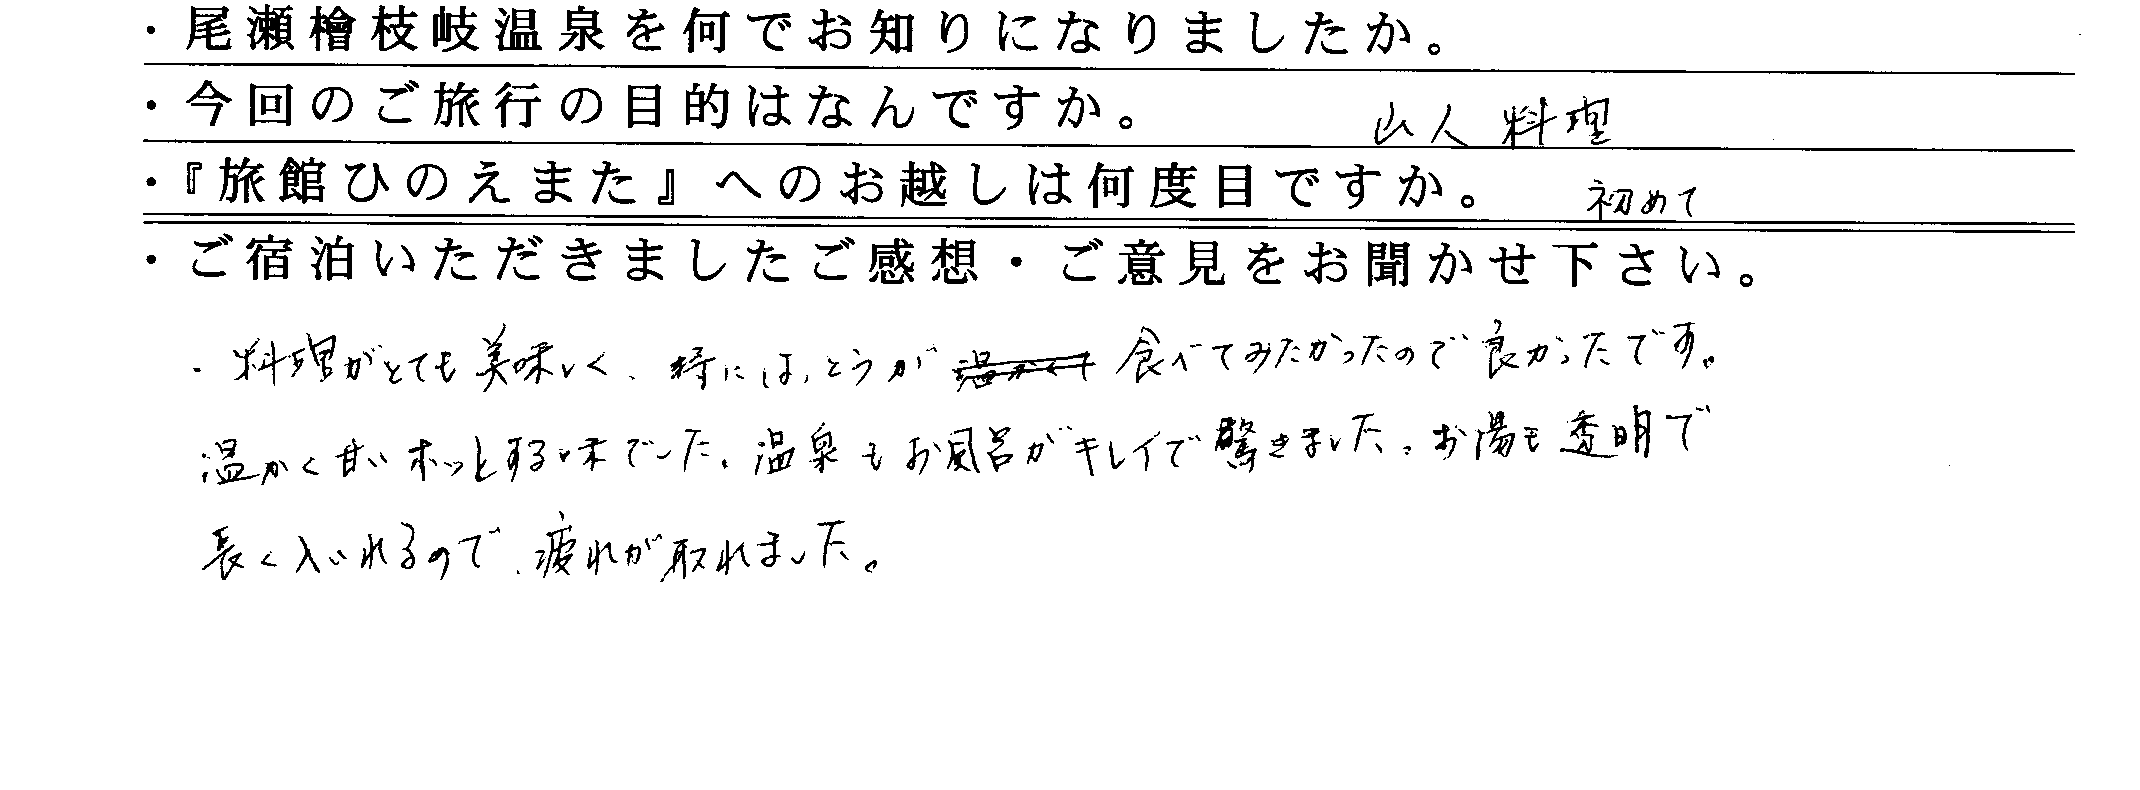 ・尾瀬檜枝岐温泉を何でお知りになりましたか。
・今回のご旅行の目的はなんですか。 山人料理
・『旅館ひのえまた』へのお越しは何度目ですか。 初めて
・ご宿泊いただきましたご感想・ご意見をお聞かせ下さい。
・料理がとても美味しく、特にはっとうが 食べてみたかったので良かったです。
温かく甘いホッとする味でした。温泉もお風呂がキレイで驚きました。お湯も透明で
長く入いれるので、疲れが取れました。